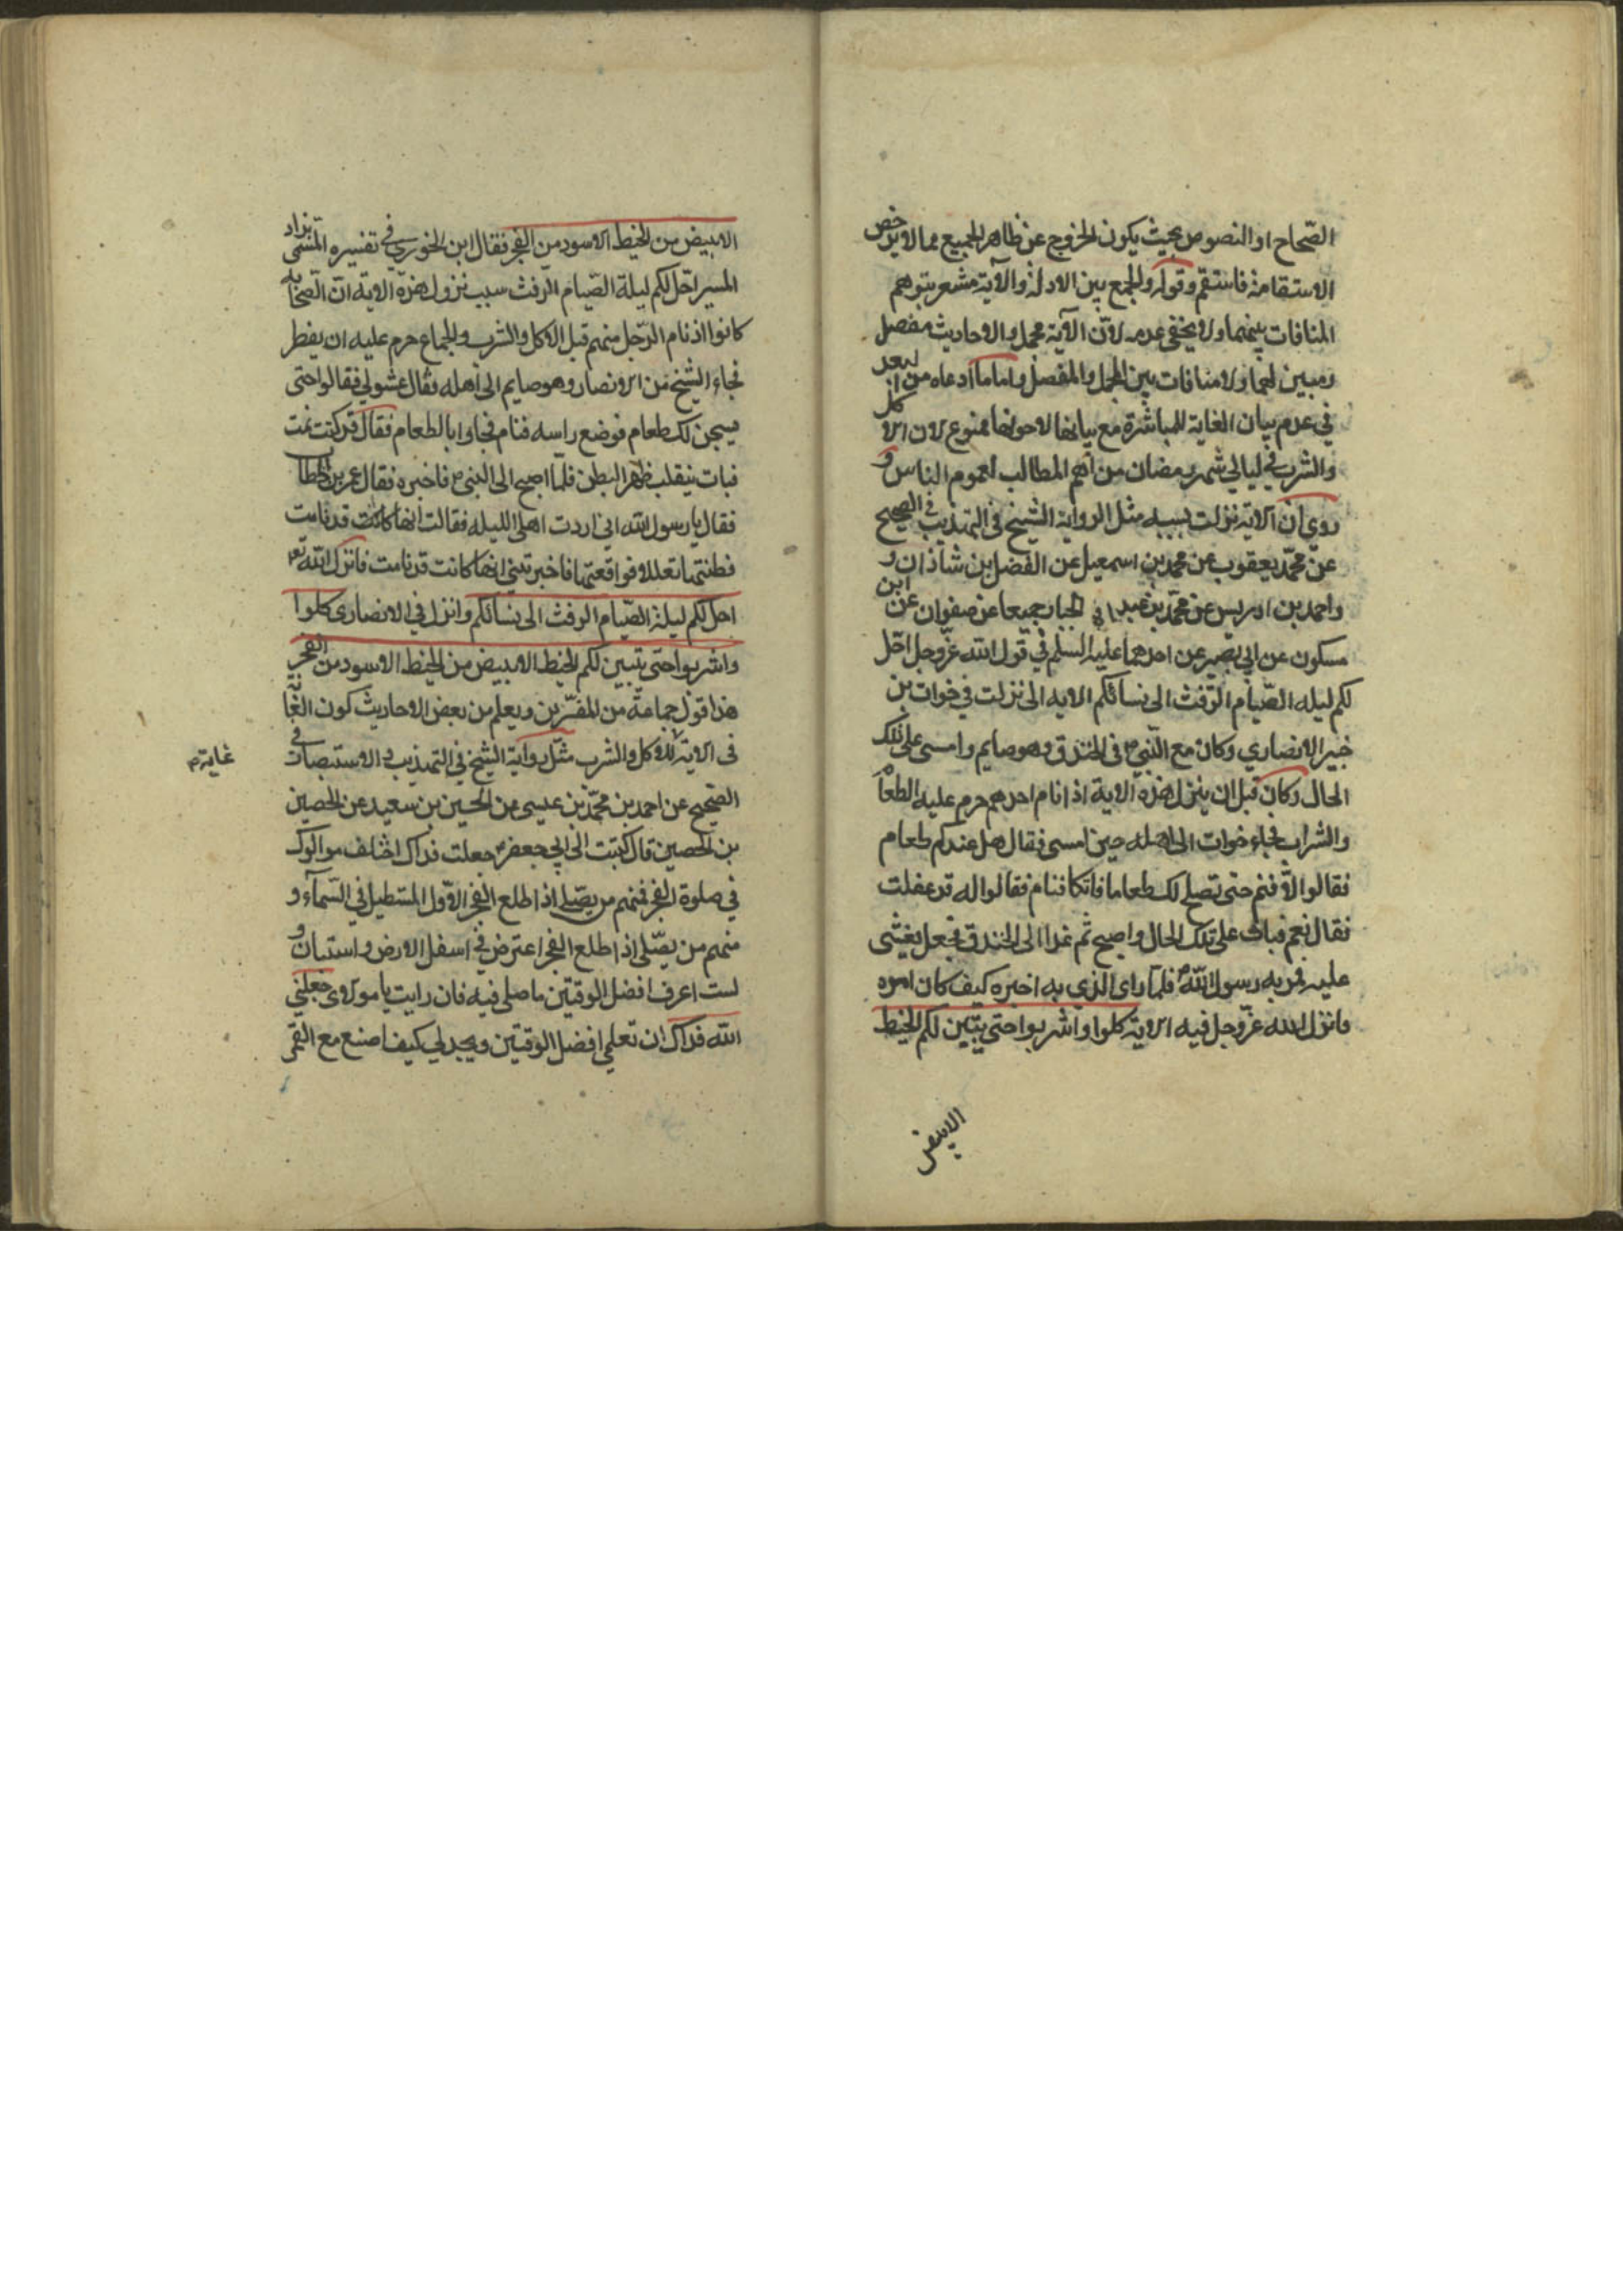 الصّحاح او النصوص بحيث يكون الخروج عن ظاهر الجميع مما لا يرخص
الاستقامة فاستقم وقوله والجمع بين الادلة والآية مشعر بتوهم
المنافات بينهما ولا يخفى عدمه لانّ الآية مجمل والاحاديث مفصل
ومبين لهما ولا منافات بين المجمل والمفصل واما ما ادعاه من البعد
في عدم بيان الغاية للمباشرة مع بيانها لاحوالها ممنوع لان الاكل
والشرب في ليالي شهر رمضان من اهم المطالب لعموم الناس و
روي ان الآية نزلت بسببه مثل الرواية الشيخ في التهذيب في الصحيح
عن محمّد يعقوب عن محمد بن اسمعيل عن الفضل بن شاذان و
واحمد بن ادريس عن محمّد بن عبد الجبار جميعا عن صفوان عن ابن
مسكون عن ابي بصير عن احدهما عليه السلم في قول الله عزّ وجل احّل
لكم ليله الصّيام الرّفث الى نسائكم الايه الى نزلت في خوات بن
خبير الانصاري وكان مع النّبي ص في الخندق وهو صايم وامسى على تلك
الحال وكان قبل ان ينزل هذه الاية اذا نام احدهم حرم عليه الطعام
والشراب فجاء خوات الى اهله حين امسى فقال هل عندكم طعام
فقالوا لا فنم حتى نصلح لك طعاما فاتكا فنام فقالوا له قد غفلت
فقال نعم فبات على تلك الحال واصبح ثم غدا الى الخندق فجعل يغشى
عليه فمر به رسول الله ص فلما راى الذي به اخبره كيف كان امره
فانزل الله عزّ وجل فيه الاية كلوا واشربوا حتى يتبين لكم الخيط
الابيض
الابيض من الخيط الاسود من الفجر فقال ابن الخوري في تفسيره المسمى بزاد
المسير احّل لكم ليلة الصّيام الرفث سبب نزول هذه الاية انّ الصّحابه
كانوا اذ نام الرّجل منهم قبل الاكل والشرب والجماع حرم عليه ان يفطر
فجاء الشيخ من الانصار وهو صايم الى اهله فقال عشوني فقالوا حتى
يسجن لك طعام فوضع راسه فنام فجاوا بالطعام فقال قد كنت نمت
فبات يتقلب ظهر البطن فلما اصبح الى النبي ص فاخبره فقال عمر بن الخطاب
فقال يا رسول الله اني اردت اهلى الليله فقالت انها كانت قد نامت
فظننتها تعللا فواقعتها فاخبرتني انها كانت قد نامت فانزل الله تع
احل لكم ليلة الصّيام الرفث الى نسائكم وانزل في الانصارى كلوا
واشربوا حتى يتبين لكم الخيط الابيض من الخيط الاسود من الفجر
هذا قول جماعة من المفسّرين ويعلم من بعض الاحاديث كون الغاية
فى الاية للاكل والشرب مثل رواية الشيخ في التهذيب و الاستبصار في
غاية م
الصّحيح عن احمد بن محمّد بن عيسى عن الحسين بن سعيد عن الحصين
بن الحصين قال كتبت الى ابي جعفر ع جعلت فداك اختلف موالوك
في صلوة الفجر فمنهم من يصّلي اذا طلع الفجر الاوّل المستطيل في السّمآء و
منهم من يصّلى اذ اطلع الفجر اعترض في اسفل الارض واستبان و
لست اعرف افضل الوقتين ماصلى فيه فان رايت يا مولاى جعلني
الله فداك ان تعلمي افضل الوقتين ويحد لي كيف اصنع مع القمر